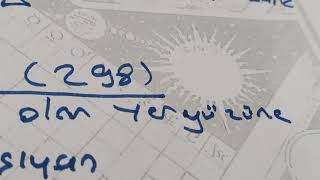 (298)
olan yeryüzüne
sıyan